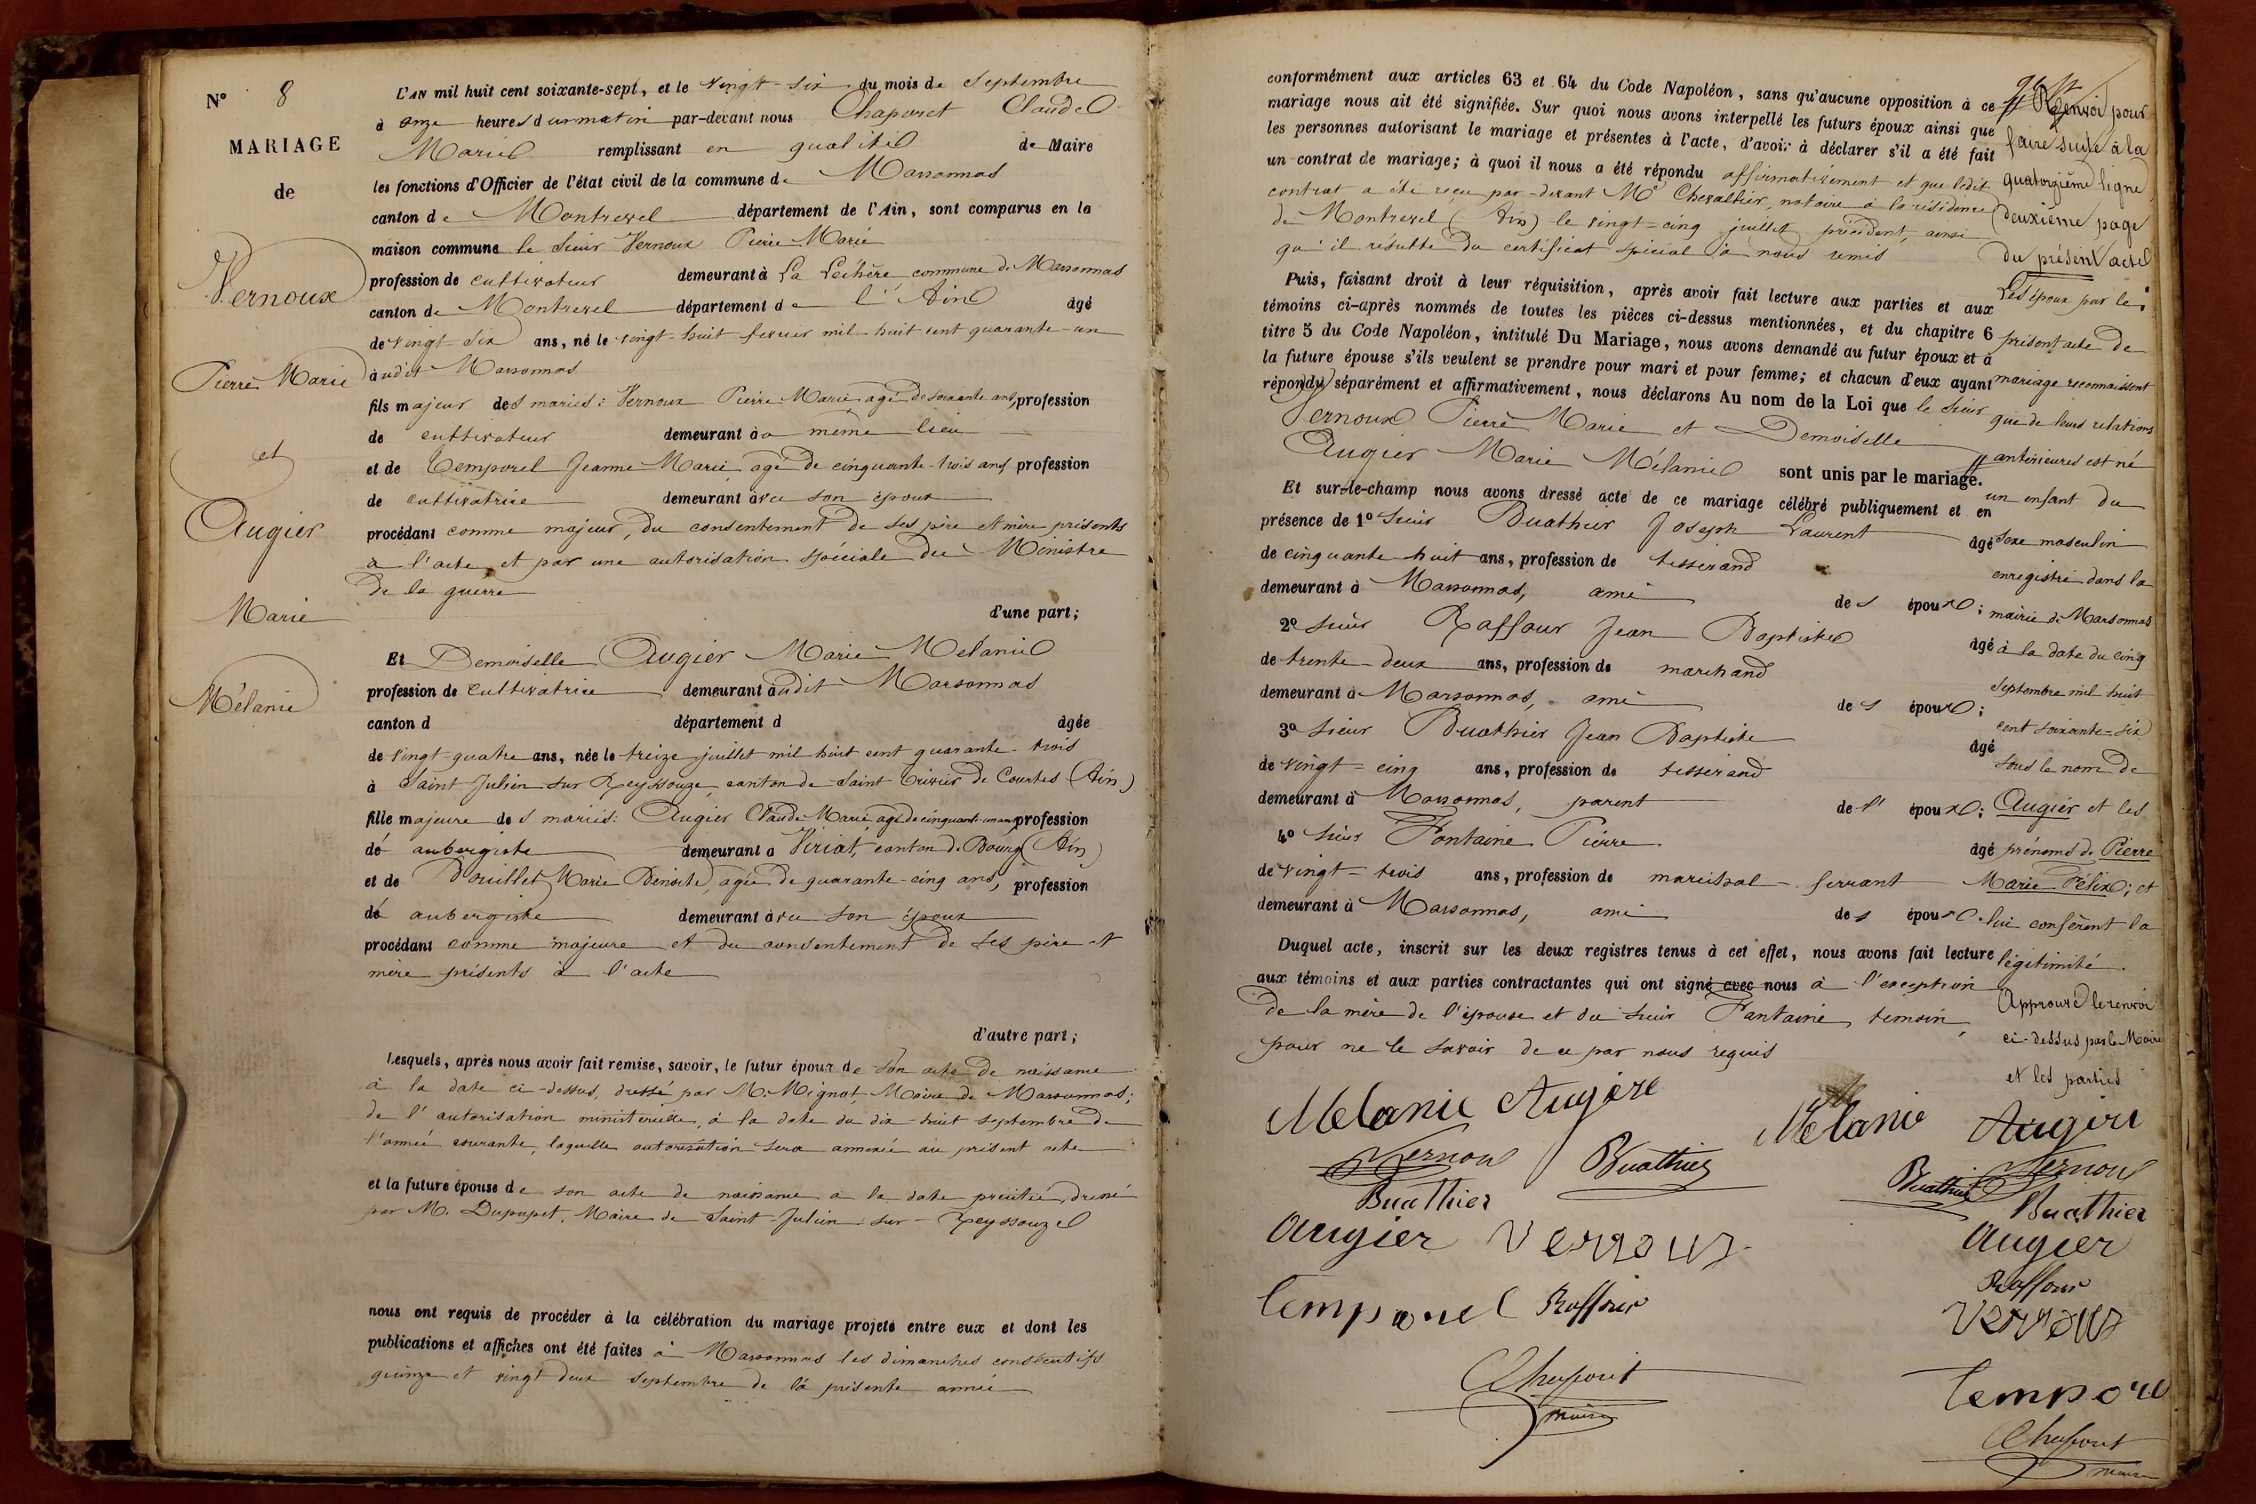 N° 8
MARIAGE
de
Vernoux
Pierre Marie
et
Augier
Marie
Mélanie
L'AN mil huit cent soixante-sept, et le vingt-six du mois de Septembre
à onze heures du matin par-devant nous Chaparet Claude
Marie remplissant en qualité de Maire
les fonctions d'Officier de l'état civil de la commune de Marsonnas
canton de Montrevel département de l'Ain, sont comparus en la
maison commune le sieur Vernoux Pierre Marie
profession de cultivateur demeurant à La Lechère commune de Marsonnas
canton de Montrevel département de l'Ain âgé
de vingt-six ans, né le vingt-huit février mil huit cent quarante-un
audit Marsonnas
fils majeur des mariés: Vernoux Pierre Marie agé de soixante ans, profession
de cultivateur demeurant au même lieu
et de Temporel Jeanne Marie agée de cinquante-trois ans, profession
de cultivatrice demeurant avec son époux
procédant comme majeur, du consentement de ses père et mère présents
à l'acte et par une autorisation spéciale du Ministre
de la guerre
d'une part;
Et Demoiselle Augier Marie Mélanie
profession de cultivatrice demeurant audit Marsonnas
canton d département d âgée
de vingt-quatre ans, née le treize juillet mil huit cent quarante-trois
à Saint Julien sur Reyssouze, canton de Saint Trivier de Courtes (Ain)
fille majeure des mariés: Augier Claude Marie, agé de cinquante-un ans, profession
de aubergiste demeurant à Viriat, canton de Bourg (Ain)
et de Douillet Marie Benoite, agée de quarante-cinq ans, profession
de aubergiste demeurant avec son époux
procédant comme majeure et du consentement de ses père et
mère présents à l'acte
d'autre part;
Lesquels, après nous avoir fait remise, savoir, le futur époux de son acte de naissance
à la date ci-dessus, dressé par M. Mignot, Maire de Marsonnas;
de l'autorisation ministérielle, à la date du dix-huit septembre de
l'année courante, laquelle autorisation sera annexée au présent acte
et la future épouse de son acte de naissance à la date précitée, dressé
par M. Dupupet, Maire de Saint-Julien-sur-Reyssouze
nous ont requis de procéder à la célébration du mariage projeté entre eux et dont les
publications et affiches ont été faites à Marsonnas les dimanches consécutifs
quinze et vingt deux septembre de la présente année
conformément aux articles 63 et 64 du Code Napoléon, sans qu'aucune opposition à ce
mariage nous ait été signifiée. Sur quoi nous avons interpellé les futurs époux ainsi que
les personnes autorisant le mariage et présentes à l'acte, d'avoir à déclarer s'il a été fait
un contrat de mariage; à quoi il nous a été répondu affirmativement et que ledit
contrat a été reçu par-devant Me Chevaltier, notaire à la résidence
de Montrevel (Ain) le vingt-cinq juillet précédent, ainsi
qu'il résulte du certificat spécial à nous remis
Puis, faisant droit à leur réquisition, après avoir fait lecture aux parties et aux
témoins ci-après nommés de toutes les pièces ci-dessus mentionnées, et du chapitre 6
titre 5 du Code Napoléon, intitulé Du Mariage, nous avons demandé au futur époux et à
la future épouse s'ils veulent se prendre pour mari et pour femme; et chacun d'eux ayant
répondu séparément et affirmativement, nous déclarons Au nom de la Loi que le sieur
Vernoux Pierre Marie et Demoiselle
Augier Marie Mélanie sont unis par le mariage.
Et sur-le-champ nous avons dressé acte de ce mariage célébré publiquement et en
présence de 1° sieur Buathier Joseph Laurent âgé
de cinquante-huit ans, profession de tisserand
demeurant à Marsonnas, ami des époux;
2° sieur Raffour Jean Baptiste âgé
de trente-deux ans, profession de marchand
demeurant à Marsonnas, ami des époux;
3° sieur Buathier Jean Baptiste âgé
de vingt-cinq ans, profession de tisserand
demeurant à Marsonnas, parent de l'époux;
4° sieur Fontaine Pierre âgé
de vingt-trois ans, profession de maréchal-ferrant
demeurant à Marsonnas, ami des époux.
Duquel acte, inscrit sur les deux registres tenus à cet effet, nous avons fait lecture
aux témoins et aux parties contractantes qui ont signé avec nous à l'exception
de la mère de l'épouse et du sieur Fontaine, témoin,
pour ne le savoir de ce par nous requis
Renvoi pour
faire suite à la
quatorzième ligne
deuxième page
du présent acte
Les époux par le
présent acte de
mariage reconnaissent
que de leurs relations
antérieures est né
un enfant du
sexe masculin
enregistré dans la
mairie de Marsonnas
à la date du cinq
septembre mil huit
cent soixante-six
sous le nom de
Augier et les
prénoms de Pierre
Marie Félix; et
lui confèrent la
légitimité.
Approuvé le renvoi
ci-dessus par le Maire
et les parties
Mélanie Augère
Vernoux Buathier
Buathier
Augier Vernoux
Temporel Raffour
Chaparet
maire
Mélanie Augère
Buathier Vernoux
Buathier
Augier
Raffour
Vernoux
Temporel
Chaparet
maire